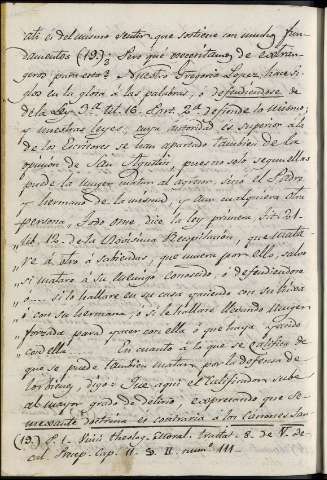 ate es del mismo sentir que sostiene con muchos fun-
damentos (19.) Pero qué necesitamos de extran-
geros para esto? Nuestro Gregorio Lopez, hace si-
glos en la glosa á las palabras, ó defendiendose de
de la Ley 3.ª tit. 16. Part. 2.ª defiende lo mismo,
y nuestras leyes, cuya autoridad es superior á la
de los Escritores se han apartado tambien de la
opinion de San Agustin, pues no solo segun ellas
puede la muger matar al agresor, sino el Padre
y hermano de la misma, y aun cualquiera otra
persona, Todo ome dice la ley primera tit. 21.
„ lib. 12. de la Novísima Recopilacion, que mata-
„ se á otro á sabiendas, que muera por ello, salvo
„ si matare á su enemigo conocido, ó defendiendose
„ ó.... si lo hallare en su casa yaciendo con su hija
„ ó con su hermana; ó si le hallare llevando muger
„ forzada para yacer con ella ó que haya yacido
„ con ella. En cuanto á lo que se califica de
que se puede tambien matar por la defensa de
los bienes, digo: Que aquí el Calificador sube
al mayor grado de delirio, expresando que se-
mejante doctrina es contraria á los Canones Sa-
(19.) P. 1. theolog. Moral. Tractat. 8. de V. De-
cal. Præcep. Cap. II. §. II. num.º III.